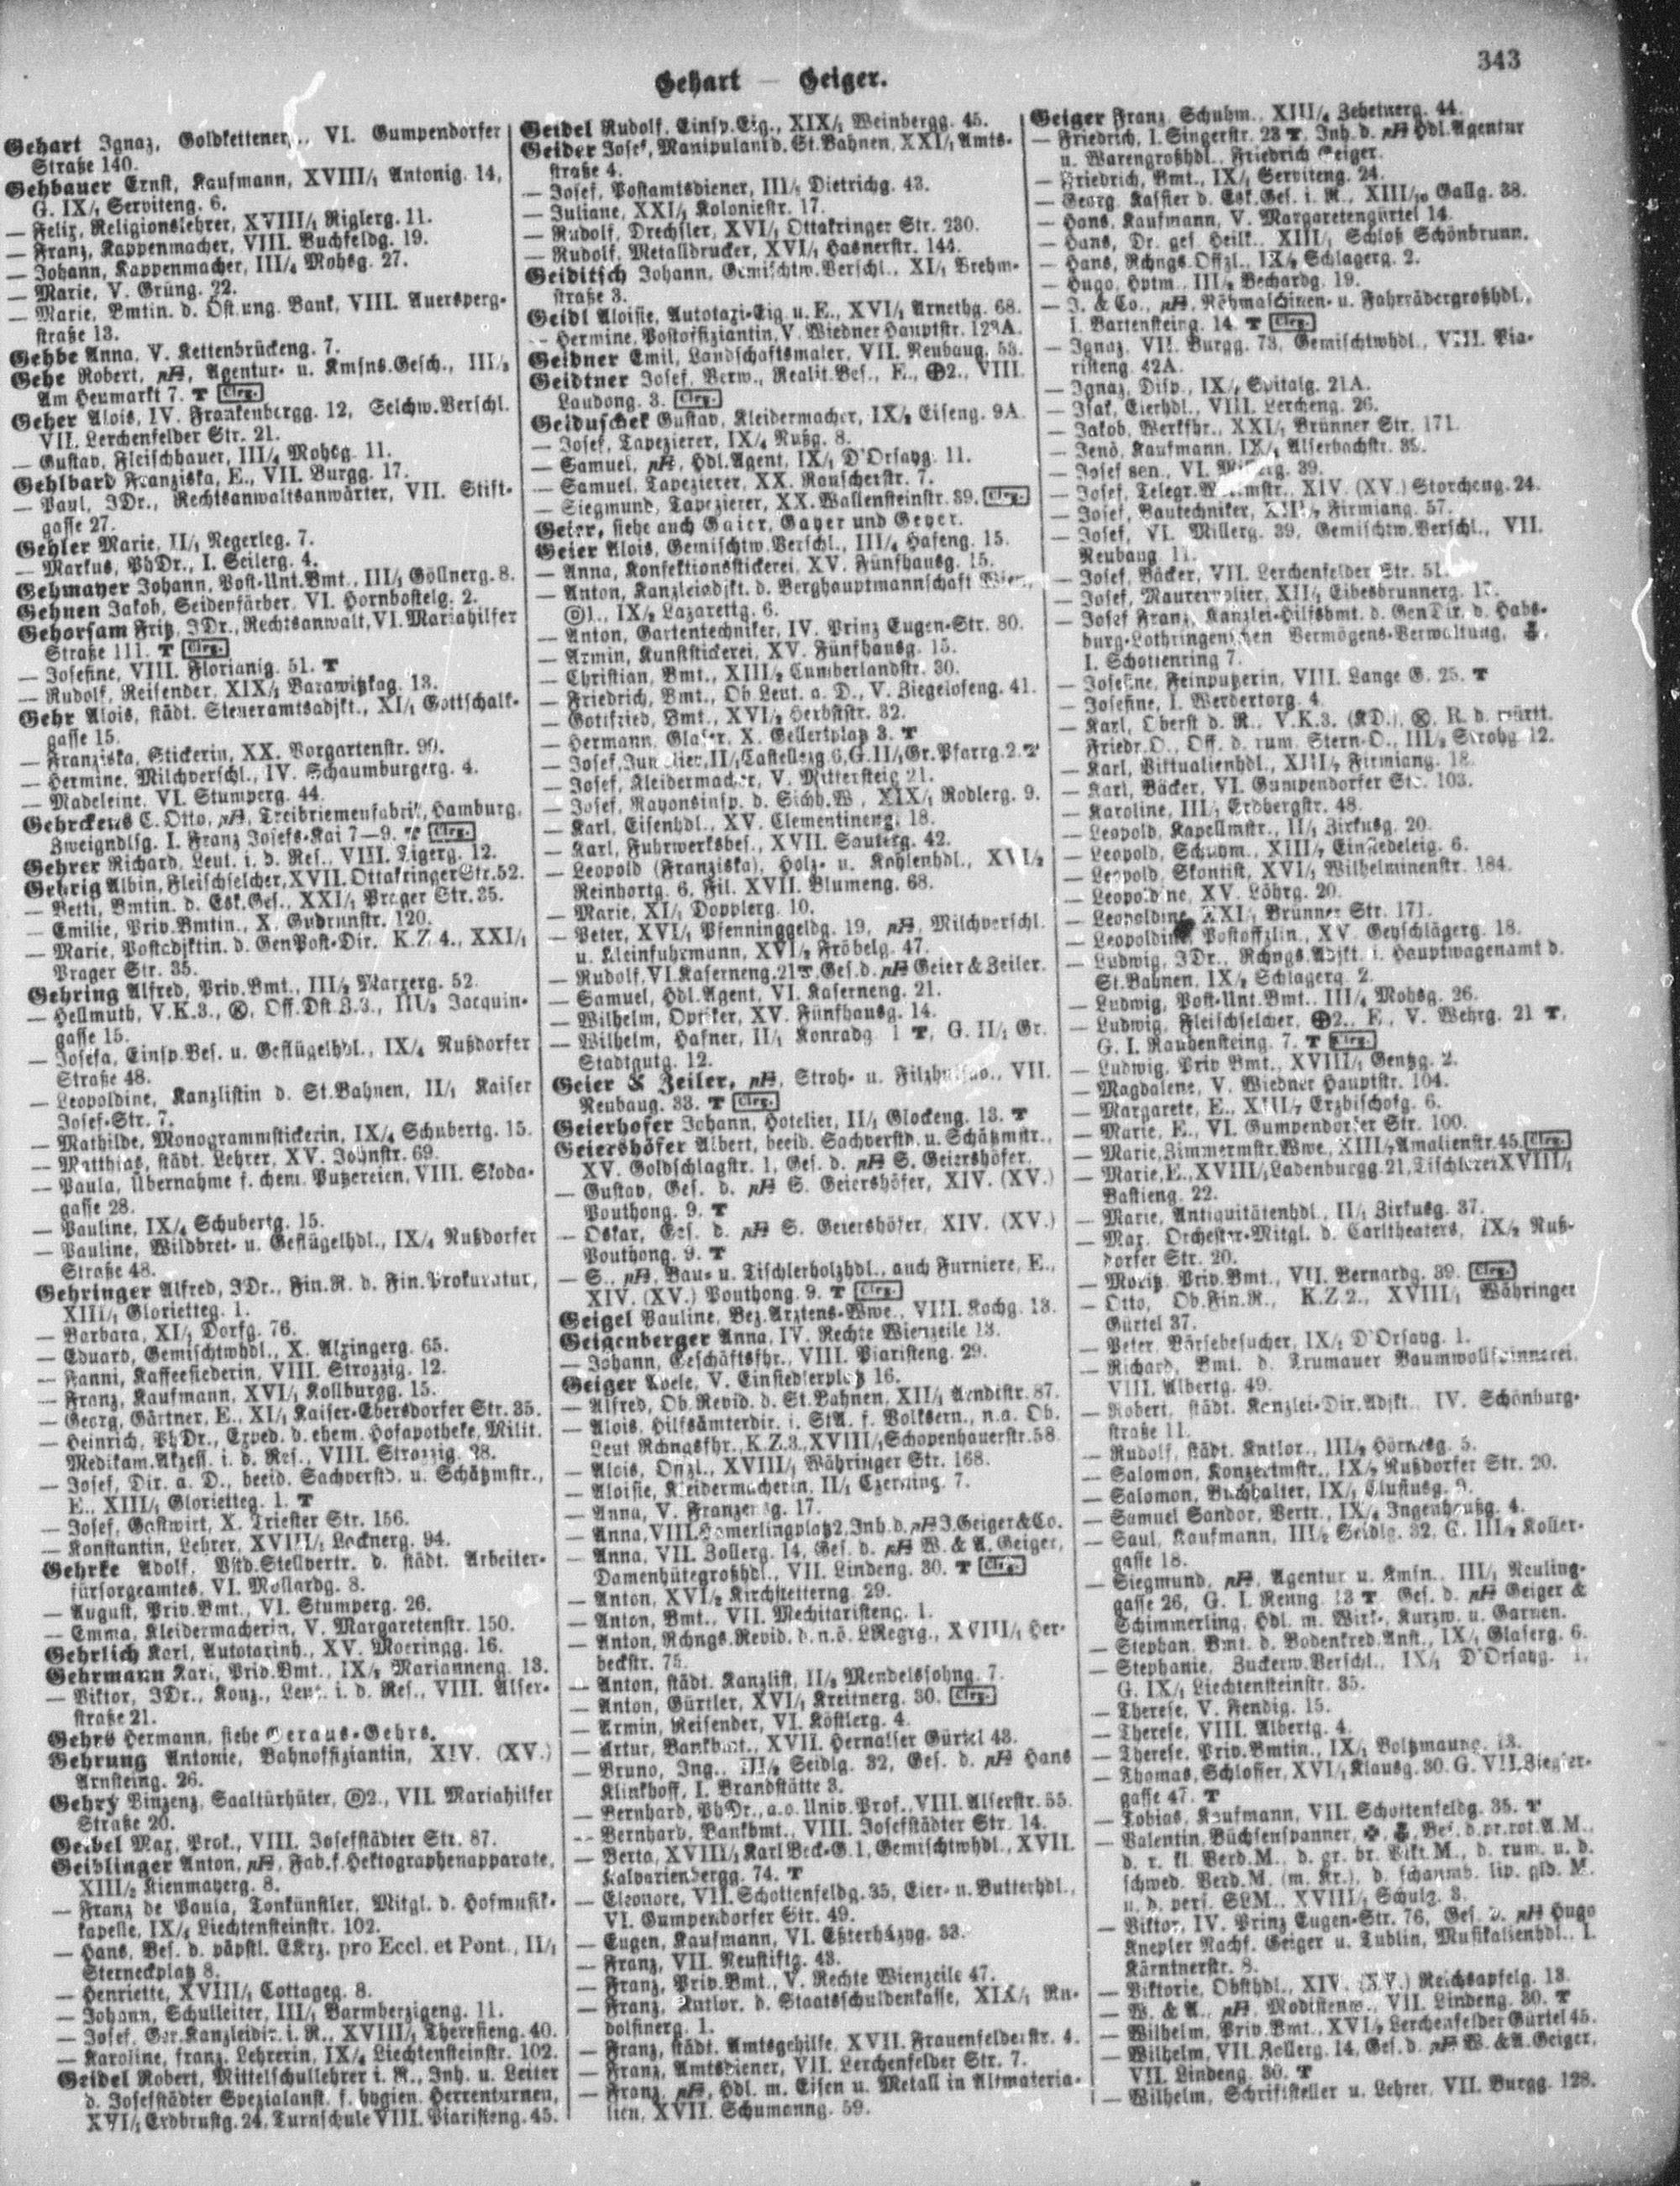 343
Gehart — Geiger.
Gehart Ignaz, Goldkettener VI. Gumpendorfer
Straße 140.
Gehbauer Ernst, Kaufmann, XVIII/1 Antonig. 14,
G. IX/1 Serviteng. 6.
— Felix, Religionslehrer, XVIII/1 Riglerg. 11.
— Franz, Kappenmacher, VIII. Buchfeldg. 19.
— Johann, Kappenmacher, III/4 Mohsg. 27.
— Marie, V. Grüng. 22.
— Marie, Bmtin. d. Öst.ung. Bank, VIII. Auersperg-
straße 13.
Gehbe Anna, V. Kettenbrückeng. 7.
Gehe Robert, pH, Agentur- u. Kmsns.Gesch., III/3
Am Heumarkt 7. T Clrg.
Geher Alois, IV. Frankenbergg. 12, Selchw.Verschl.
VII. Lerchenfelder Str. 21.
— Gustav, Fleischhauer, III/4 Mohsg. 11.
Gehlbard Franziska, E., VII. Burgg. 17.
— Paul, JDr., Rechtsanwaltsanwärter, VII. Stift-
gasse 27.
Gehler Marie, II/1 Negerleg. 7.
— Markus, PhDr., I. Seilerg. 4.
Gehmayer Johann, Post-Unt.Bmt., III/1 Göllnerg. 8.
Gehnen Jakob, Seidenfärber, VI. Hornbostelg. 2.
Gehorsam Fritz, JDr., Rechtsanwalt, VI. Mariahilfer
Straße 111. T Clrg.
— Josefine, VIII. Florianig. 51. T
— Rudolf, Reisender, XIX/1 Barawitzkag. 13.
Gehr Alois, städt. Steueramtsadjkt., XI/1 Gottschalk-
gasse 15.
— Franziska, Stickerin, XX. Vorgartenstr. 99.
— Hermine, Milchverschl., IV. Schaumburgerg. 4.
— Madeleine, VI. Stumperg. 44.
Gehrckens C. Otto, pH, Treibriemenfabrik, Hamburg,
Zweigndlsg. I. Franz Josefs-Kai 7—9. T Clrg.
Gehrer Richard, Leut. i. d. Res., VIII. Tigerg. 12.
Gehrig Albin, Fleischselcher, XVII. Ottakringer Str. 52.
— Betti, Bmtin. d. Esk.Ges., XXI/1 Prager Str. 35.
— Emilie, Priv.Bmtin., X. Gudrunstr. 120.
— Marie, Postadjktin. d. GenPost-Dir., K.Z. 4., XXI/1
Prager Str. 35.
Gehring Alfred, Priv.Bmt., III/2 Marxerg. 52.
— Hellmuth, V.K.3., Off.Dst.Z.3., III/3 Jacquin-
gasse 15.
— Josefa, Einsp.Bes. u. Geflügelhdl., IX/4 Nußdorfer
Straße 48.
— Leopoldine, Kanzlistin d. St.Bahnen, II/1 Kaiser
Josef-Str. 7.
— Mathilde, Monogrammstickerin, IX/4 Schubertg. 15.
— Matthias, städt. Lehrer, XV. Johnstr. 69.
— Paula, Übernahme f. chem. Putzereien, VIII. Skoda-
gasse 28.
— Pauline, IX/4 Schubertg. 15.
— Pauline, Wildbret- u. Geflügelhdl., IX/4 Nußdorfer
Straße 48.
Gehringer Alfred, JDr., Fin.R. d. Fin.Prokuratur,
XIII/1 Glorietteg. 1.
— Barbara, XI/1 Dorfg. 76.
— Eduard, Gemischtwhdl., X. Alxingerg. 65.
— Fanni, Kaffeesiederin, VIII. Strozzig. 12.
— Franz, Kaufmann, XVI/1 Kollburgg. 15.
— Georg, Gärtner, E., XI/1 Kaiser-Ebersdorfer Str. 35.
— Heinrich, PhDr., Exped. d. ehem. Hofapotheke, Milit.
Medikam.Akzess. i. d. Res., VIII. Strozzig. 28.
— Josef, Dir. a. D., beeid. Sachverst. u. Schätzmstr.,
E., XIII/1 Glorietteg. 1. T
— Josef, Gastwirt, X. Triester Str. 156.
— Konstantin, Lehrer, XVIII/1 Lacknerg. 94.
Gehrke Adolf, Vstd.Stellvertr. d. städt. Arbeiter-
fürsorgeamtes, VI. Mollardg. 8.
— August, Priv.Bmt., VI. Stumperg. 26.
— Emma, Kleidermacherin, V. Margaretenstr. 150.
Gehrlich Karl, Autotaxinh., XV. Moeringg. 16.
Gehrmann Karl, Priv.Bmt., IX/3 Marianneng. 13.
— Viktor, JDr., Konz., Leut. i. d. Res., VIII. Alser-
straße 21.
Gehrs Hermann, siehe Geraus-Gehrs.
Gehrung Antonie, Bahnoffiziantin, XIV. (XV.)
Arnsteing. 26.
Gehry Vinzenz, Saaltürhüter, 2., VII. Mariahilfer
Straße 20.
Geibel Max, Prok., VIII. Josefstädter Str. 87.
Geiblinger Anton, pH, Fab. f. Hektographenapparate,
XIII/2 Kienmayerg. 8.
— Franz de Paula, Tonkünstler, Mitgl. d. Hofmusik-
kapelle, IX/4 Liechtensteinstr. 102.
— Hans, Bes. d. päpstl. EKrz. pro Eccl. et Pont., II/1
Sterneckplatz 8.
— Henriette, XVIII/1 Cottageg. 8.
— Johann, Schulleiter, III/1 Barmherzigeng. 11.
— Josef, Ger.Kanzleidir. i. R., XVIII/1 Theresieng. 40.
— Karoline, franz. Lehrerin, IX/4 Liechtensteinstr. 102.
Geidel Robert, Mittelschullehrer i. R., Inh. u. Leiter
d. Josefstädter Spezialanst. f. hygien. Herrenturnen,
XVI/1 Erdbrustg. 24, Turnschule VIII. Piaristeng. 45.
Geidel Rudolf, Einsp.Eig., XIX/1 Weinbergg. 45.
Geider Josef, Manipulant d. St.Bahnen, XXI/1 Amts-
straße 4.
— Josef, Postamtsdiener, III/1 Dietrichg. 43.
— Juliane, XXI/1 Koloniestr. 17.
— Rudolf, Drechsler, XVI/1 Ottakringer Str. 230.
— Rudolf, Metalldrucker, XVI/1 Hasnerstr. 144.
Geiditsch Johann, Gemischtw.Verschl., XI/1 Brehm-
straße 3.
Geidl Aloisie, Autotaxi-Eig. u. E., XVI/1 Arnethg. 68.
— Hermine, Postoffiziantin, V. Wiedner Hauptstr. 123A.
Geidner Emil, Landschaftsmaler, VII. Neubaug. 53.
Geidtner Josef, Verw., Realit.Bes., E., 2., VIII.
Laudong. 3. Clrg.
Geiduschek Gustav, Kleidermacher, IX/3 Eiseng. 9A.
— Josef, Tapezierer, IX/4 Nußg. 8.
— Samuel, pH, Hdl.Agent, IX/1 D'Orsayg. 11.
— Samuel, Tapezierer, XX. Rauscherstr. 7.
— Siegmund, Tapezierer, XX. Wallensteinstr. 39. Clrg.
Geier, siehe auch Gaier, Gayer und Geyer.
Geier Alois, Gemischtw.Verschl., III/4 Hafeng. 15.
— Anna, Konfektionsstickerei, XV. Fünfhausg. 15.
— Anton, Kanzleiadjkt. d. Berghauptmannschaft Wien,
1., IX/2 Lazarettg. 6.
— Anton, Gartentechniker, IV. Prinz Eugen-Str. 80.
— Armin, Kunststickerei, XV. Fünfhausg. 15.
— Christian, Bmt., XIII/2 Cumberlandstr. 30.
— Friedrich, Bmt., Ob.Leut. a. D., V. Ziegelofeng. 41.
— Gottfried, Bmt., XVI/2 Herbststr. 32.
— Hermann, Glaser, X. Gellertplatz 3. T
— Josef, Juwelier, II/1 Castellezg. 6, G. II/1 Gr. Pfarrg. 2. T
— Josef, Kleidermacher, V. Mittersteig 21.
— Josef, Rayonsinsp. d. Sichh.W., XIX/1 Rodlerg. 9.
— Karl, Eisenhdl., XV. Clementineng. 18.
— Karl, Fuhrwerksbes., XVII. Sauterg. 42.
— Leopold (Franziska), Holz- u. Kohlenhdl., XVI/2
Reinhartg. 6, Fil. XVII. Blumeng. 68.
— Marie, XI/1 Dopplerg. 10.
— Peter, XVI/1 Pfenninggeldg. 19, pH, Milchverschl.
u. Kleinfuhrmann, XVI/2 Fröbelg. 47.
— Rudolf, VI. Kaserneng. 21 T, Ges. d. pH Geier & Zeiler.
— Samuel, Hdl.Agent, VI. Kaserneng. 21.
— Wilhelm, Optiker, XV. Fünfhausg. 14.
— Wilhelm, Hafner, II/1 Konradg. 1 T, G. II/1 Gr.
Stadtgutg. 12.
Geier & Zeiler, pH, Stroh- u. Filzhutfab., VII.
Neubaug. 33. T Clrg.
Geierhofer Johann, Hotelier, II/1 Glockeng. 13. T
Geiershöfer Albert, beeid. Sachverstd. u. Schätzmstr.,
XV. Goldschlagstr. 1, Ges. d. pH S. Geiershöfer.
— Gustav, Ges. d. pH S. Geiershöfer, XIV. (XV.)
Pouthong. 9. T
— Oskar, Ges. d. pH S. Geiershöfer, XIV. (XV.)
Pouthong. 9. T
— S., pH, Bau- u. Tischlerholzhdl., auch Furniere, E.,
XIV. (XV.) Pouthong. 9. T Clrg.
Geigel Pauline, Bez.Arztens-Wwe., VIII. Kochg. 13.
Geigenberger Anna, IV. Rechte Wienzeile 13.
— Johann, Geschäftsfhr., VIII. Piaristeng. 29.
Geiger Adele, V. Einsiedlerplatz 16.
— Alfred, Ob.Revid. d. St.Bahnen, XII/1 Arndtstr. 87.
— Alois, Hilfsämterdir. i. StA. f. Volksern., n.a. Ob.
Leut Rchngsfhr., K.Z.3., XVIII/1 Schopenhauerstr. 58.
— Alois, Offzl., XVIII/1 Währinger Str. 168.
— Aloisie, Kleidermacherin, II/1 Czerning. 7.
— Anna, V. 17.
— Anna, VIII. Hamerlingplatz 2, Inh. d. pH J. Geiger & Co.
— Anna, VII. Zollerg. 14, Ges. d. pH W. & A. Geiger,
Damenhütegroßhdl., VII. Lindeng. 30. T Clrg.
— Anton, XVI/2 Kirchstetterng. 29.
— Anton, Bmt., VII. Mechitaristeng. 1.
— Anton, Rchngs.Revid. d. n.ö. LRegrg., XVIII/1 Her-
beckstr. 75.
— Anton, städt. Kanzlist, II/2 Mendelssohng. 7.
— Anton, Gürtler, XVI/1 Kreitnerg. 30. Clrg.
— Armin, Reisender, VI. Köstlerg. 4.
— Artur, Bankbmt., XVII. Hernalser Gürtel 43.
— Bruno, Ing., III/2 Seidlg. 32, Ges. d. pH Hans
Klinkhoff, I. Brandstätte 3.
— Bernhard, PhDr., a.o. Univ.Prof., VIII. Alserstr. 55.
— Bernhard, Bankbmt., VIII. Josefstädter Str. 14.
— Berta, XVIII/1 Karl Beck-G. 1, Gemischtwhdl., XVII.
Kalvarienbergg. 74. T
— Eleonore, VII. Schottenfeldg. 35, Eier- u. Butterhdl.,
VI. Gumpendorfer Str. 49.
— Eugen, Kaufmann, VI. Eßterházyg. 33.
— Franz, VII. Neustiftg. 43.
— Franz, Priv.Bmt., V. Rechte Wienzeile 47.
— Franz, Kntlor. d. Staatsschuldenkasse, XIX/1 Ru-
dolfinerg. 1.
— Franz, städt. Amtsgehilfe, XVII. Frauenfelderstr. 4.
— Franz, Amtsdiener, VII. Lerchenfelder Str. 7.
— Franz, pH, Hdl. m. Eisen u. Metall in Altmateria-
lien, XVII. Schumanng. 59.
Geiger Franz, Schuhm., XIII/4 Zehetnerg. 44.
— Friedrich, I. Singerstr. 23 T, Inh. d. pH Hdl.Agentur
u. Warengroßhdl., Friedrich Geiger.
— Friedrich, Bmt., IX/1 Serviteng. 24.
— Georg, Kassier d. Esk.Ges. i. R., XIII/10 Gallg. 38.
— Hans, Kaufmann, V. Margaretengürtel 14.
— Hans, Dr. ges. Heilk., XIII/1 Schloß Schönbrunn.
— Hans, Rchngs.Offzl., IX/2 Schlagerg. 2.
— Hugo, Hptm., III/2 Bechardg. 19.
— J. & Co., pH, Nähmaschinen- u. Fahrrädergroßhdl.,
I. Bartensteing. 14. T Clrg.
— Ignaz, VII. Burgg. 73, Gemischtwhdl., VIII. Pia-
risteng. 42A.
— Ignaz, Disp., IX/2 Spitalg. 21A.
— Isak, Eierhdl., VIII. Lercheng. 26.
— Jakob, Werkfhr., XXI/1 Brünner Str. 171.
— Jenö, Kaufmann, IX/1 Alserbachstr. 35.
— Josef sen., VI. Millerg. 39.
— Josef, Telegr. XIV. (XV.) Storcheng. 24.
— Josef, Bautechniker, XIII/7 Firmiang. 57.
— Josef, VI. Millerg. 39, Gemischtw.Verschl., VII.
Neubaug. 11.
— Josef, Bäcker, VII. Lerchenfelder Str. 51.
— Josef, Maurerpolier, XII/1 Eibesbrunnerg.
— Josef Franz, Kanzlei-Hilfsbmt. d. GenDir. d. Habs-
burg-Lothringenschen Vermögens-Verwaltung,
I. Schottenring 7.
— Josefine, Feinputzerin, VIII. Lange G. 25. T
— Josefine, I. Werdertorg. 4.
— Karl, Oberst d. R., V.K.3. (KD.), R. d. württ.
Friedr.O., Off. d. rum. Stern-O., III/3 Strohg. 12.
— Karl, Viktualienhdl., XIII/7 Firmiang. 18.
— Karl, Bäcker, VI. Gumpendorfer Str. 103.
— Karoline, III/1 Erdbergstr. 48.
— Leopold, Kapellmstr., II/1 Zirkusg. 20.
— Leopold, Schuhm., XIII/7 Einsiedeleig. 6.
— Leopold, Skontist, XVI/1 Wilhelminenstr. 184.
— Leopoldine, XV. Löhrg. 20.
— Leopoldine, XXI/1 Brünner Str. 171.
— Leopoldine, Postoffzlin., XV. Geyschlägerg. 18.
— Ludwig, JDr., Rchngs.Adjkt. i. Hauptwagenamt d.
St.Bahnen, IX/2 Schlagerg. 2.
— Ludwig, Post-Unt.Bmt., III/4 Mohsg. 26.
— Ludwig, Fleischselcher, 2., E., V. Wehrg. 21 T,
G. I. Rauhensteing. 7. T Clrg.
— Ludwig, Priv.Bmt., XVIII/1 Gentzg. 2.
— Magdalene, V. Wiedner Hauptstr. 104.
— Margarete, E., XIII/7 Erzbischofg. 6.
— Marie, E., VI. Gumpendorfer Str. 100.
— Marie, Zimmermstr.Wwe., XIII/7 Amalienstr. 45. Clrg.
— Marie, E., XVIII/1 Ladenburgg. 21, Tischlerei XVIII/1
Bastieng. 22.
— Marie, Antiquitätenhdl., II/1 Zirkusg. 37.
— Max, Orchester-Mitgl. d. Carltheaters, IX/2 Nuß-
dorfer Str. 20.
— Moritz, Priv.Bmt., VII. Bernardg. 39. Clrg.
— Otto, Ob.Fin.R., K.Z.2., XVIII/1 Währinger
Gürtel 37.
— Peter, Börsebesucher, IX/1 D'Orsayg. 1.
— Richard, Bmt. d. Trumauer Baumwollspinnerei,
VIII. Albertg. 49.
— Robert, städt. Kanzlei-Dir.Adjkt., IV. Schönburg-
straße 11.
— Rudolf, städt. Kntlor., III/2 Hörnesg. 5.
— Salomon, Konzertmstr., IX/2 Nußdorfer Str. 20.
— Salomon, Buchhalter, IX/1 Clusiusg. 9.
— Samuel Sandor, Vertr., IX/4 Ingenhoußg. 4.
— Saul, Kaufmann, III/2 Seidlg. 32, G. III/2 Koller-
gasse 18.
— Siegmund, pH, Agentur u. Kmsn., III/1 Neuling-
gasse 26, G. I. Renng. 13 T, Ges. d. pH Geiger &
Schimmerling, Hdl. m. Wirk-, Kurzw. u. Garnen.
— Stephan, Bmt. d. Bodenkred.Anst., IX/1 Glaserg. 6.
— Stephanie, Zuckerw.Verschl., IX/1 D'Orsayg. 1,
G. IX/1 Liechtensteinstr. 35.
— Therese, V. Fendig. 15.
— Therese, VIII. Albertg. 4.
— Therese, Priv.Bmtin., IX/1 Boltzmanng. 13.
— Thomas, Schlosser, XVI/1 Klausg. 30, G. VII. Ziegler-
gasse 47. T
— Tobias, Kaufmann, VII. Schottenfeldg. 35. T
— Valentin, Büchsenspanner, Bes. d. pr. rot. A.M.,
d. r. kl. Verd.M., d. gr. br. Vikt.M., d. rum. u. d.
schwed. Verd.M. (m. Kr.), d. schaumb. lip. gld. M.
u. d. pers. SLM., XVIII/1 Schulg. 3.
— Viktor, IV. Prinz Eugen-Str. 76, Ges. d. pH Hugo
Knepler Nachf. Geiger u. Tublin, Musikalienhdl., I.
Kärntnerstr. 8.
— Viktorie, Obsthdl., XIV. (XV.) Reichsapfelg. 13.
— W. & A., pH, Modistenw., VII. Lindeng. 30. T
— Wilhelm, Priv.Bmt., XVI/2 Lerchenfelder Gürtel 45.
— Wilhelm, VII. Zollerg. 14, Ges. d. pH W. & A. Geiger,
VII. Lindeng. 30. T
— Wilhelm, Schriftsteller u. Lehrer, VII. Burgg. 128.